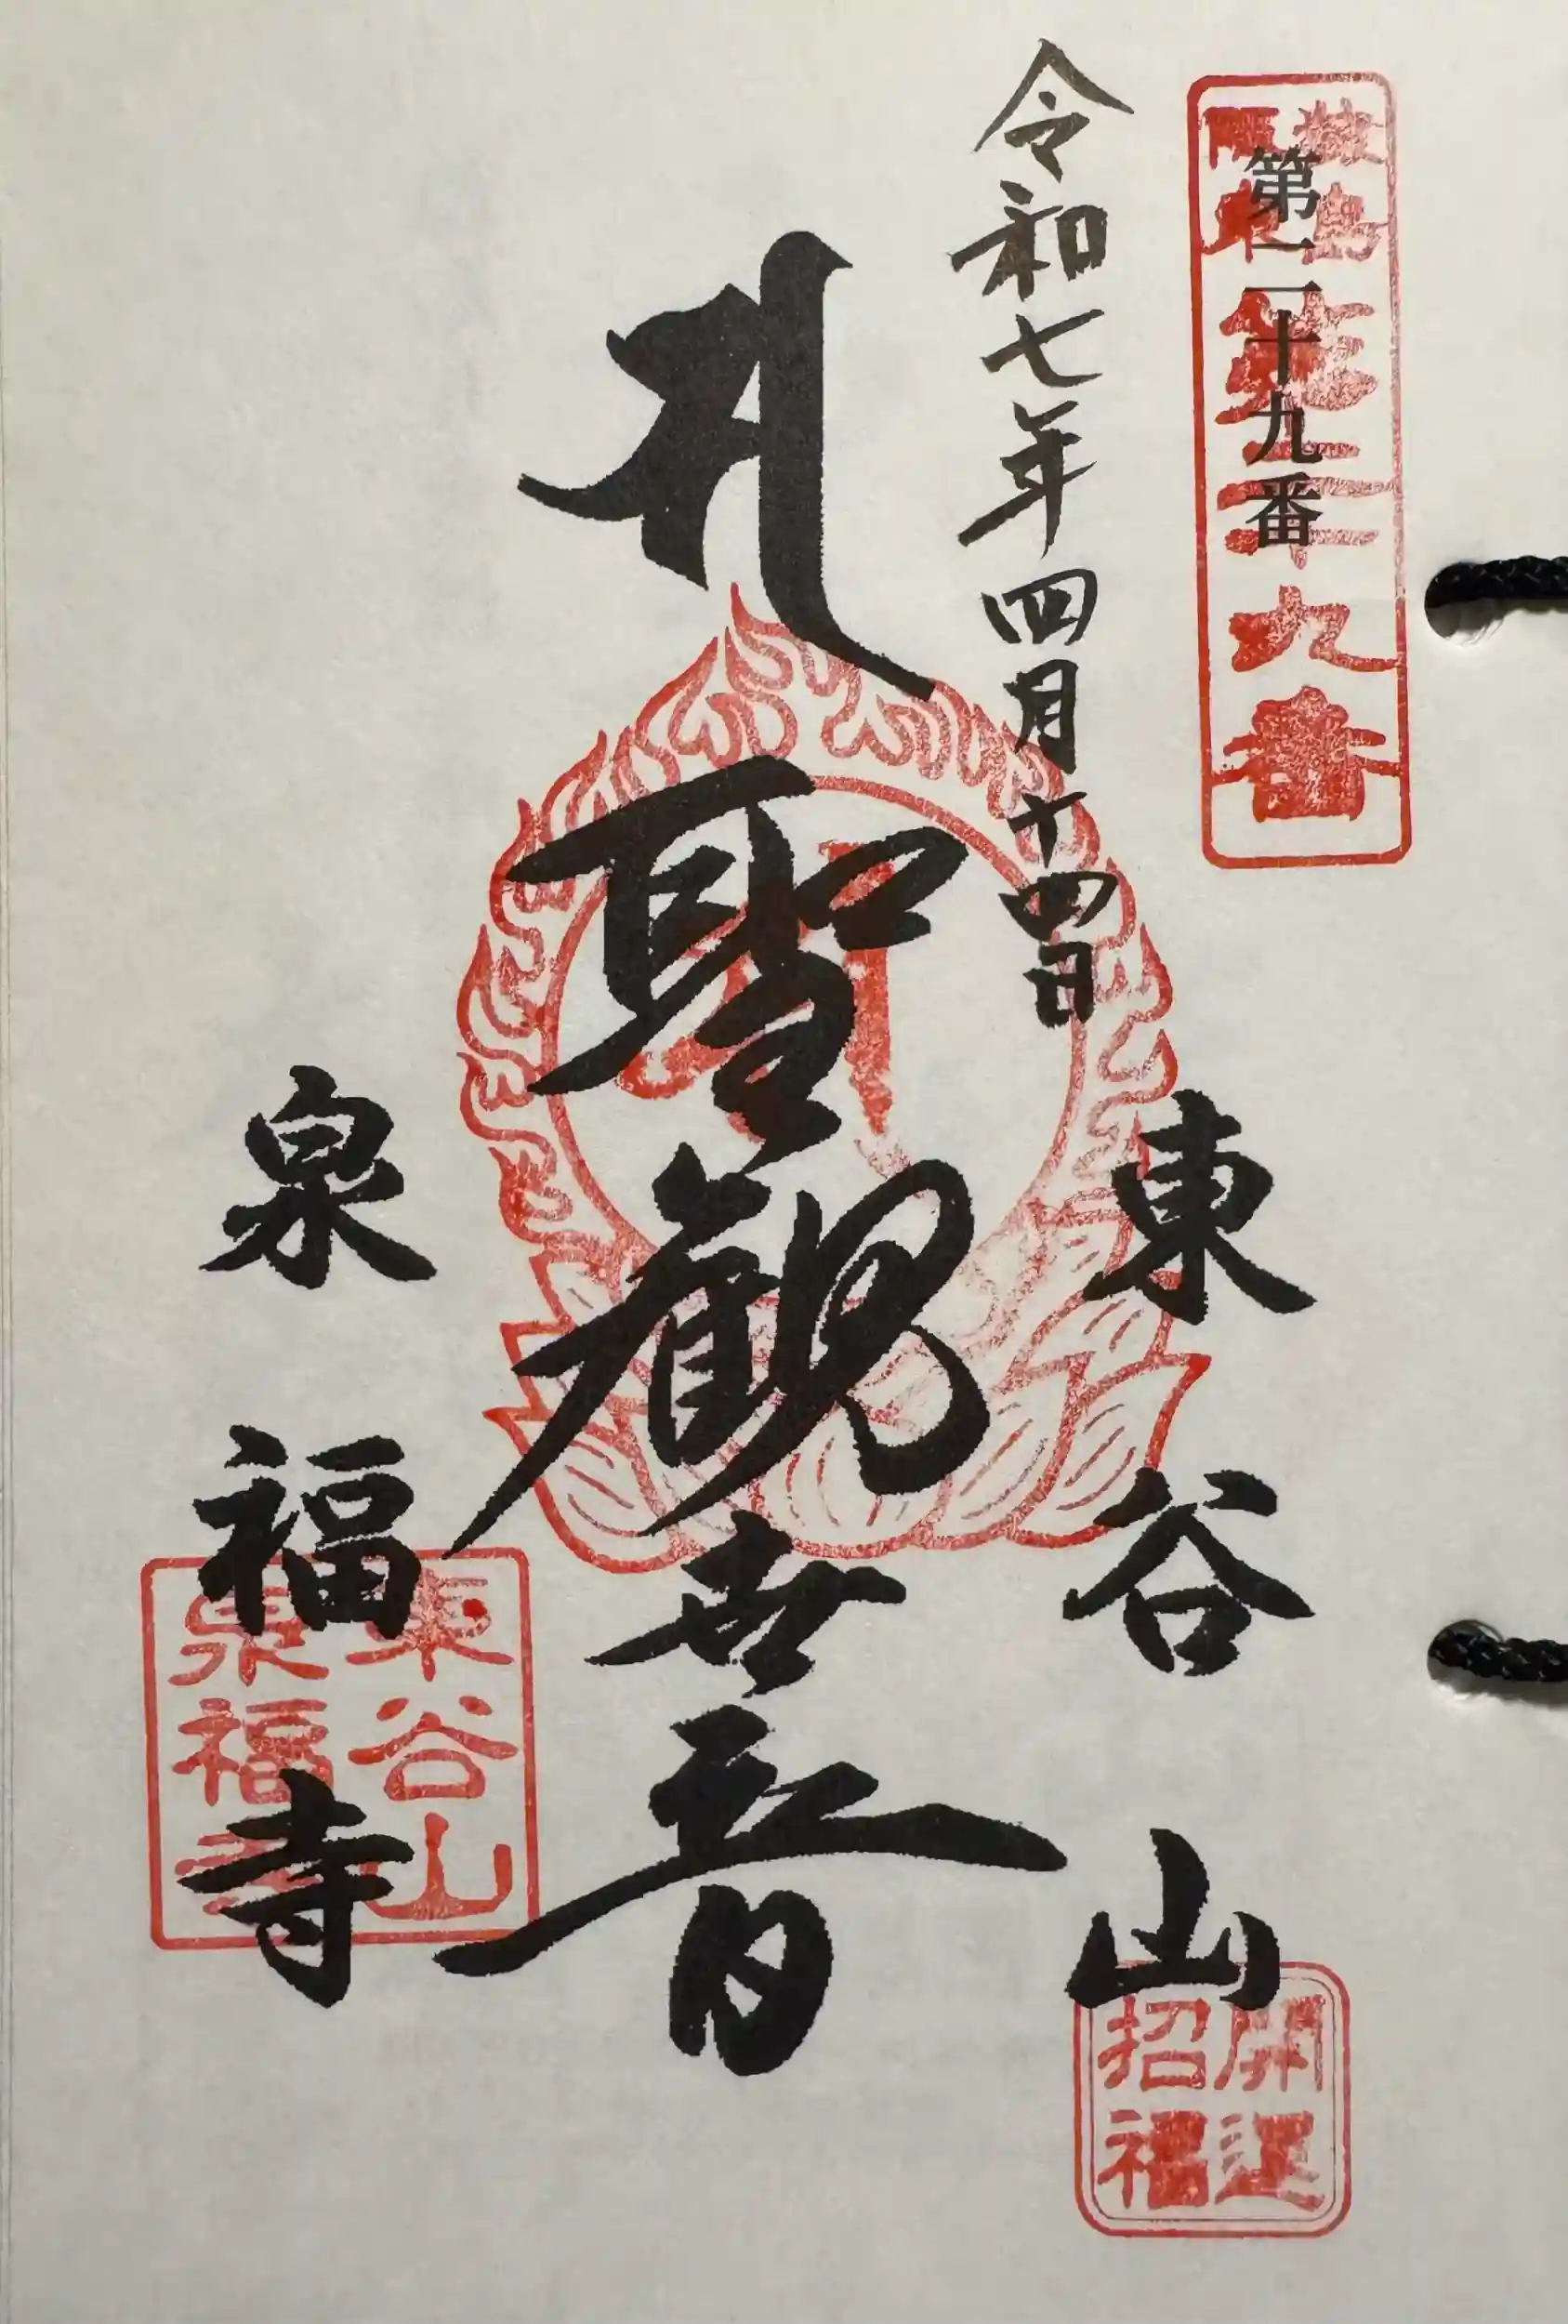 第二十九番
第二十九番
令和七年四月十四日
東谷山
開運
招福
聖観世音
泉福寺
東谷山
泉福寺